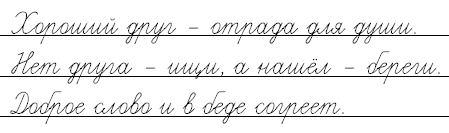 Хороший друг – отрада для души.
Нет друга – ищи, а нашёл – береги.
Доброе слово и в беде согреет.